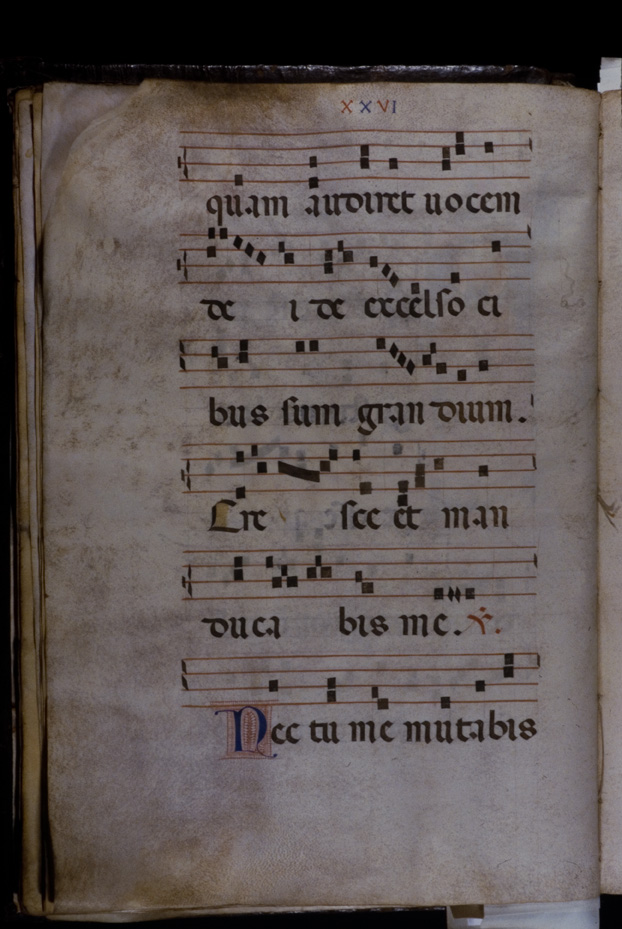 XXVI
quam audiret uocem
de i de excelso ci
bus sum gran dium.
Cre sce et man
duca bis me. ℣.
Nec tu me mutabis